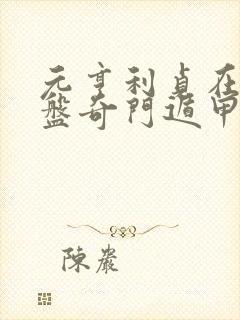 元亨利貞在
盤奇門遁甲
陳巖